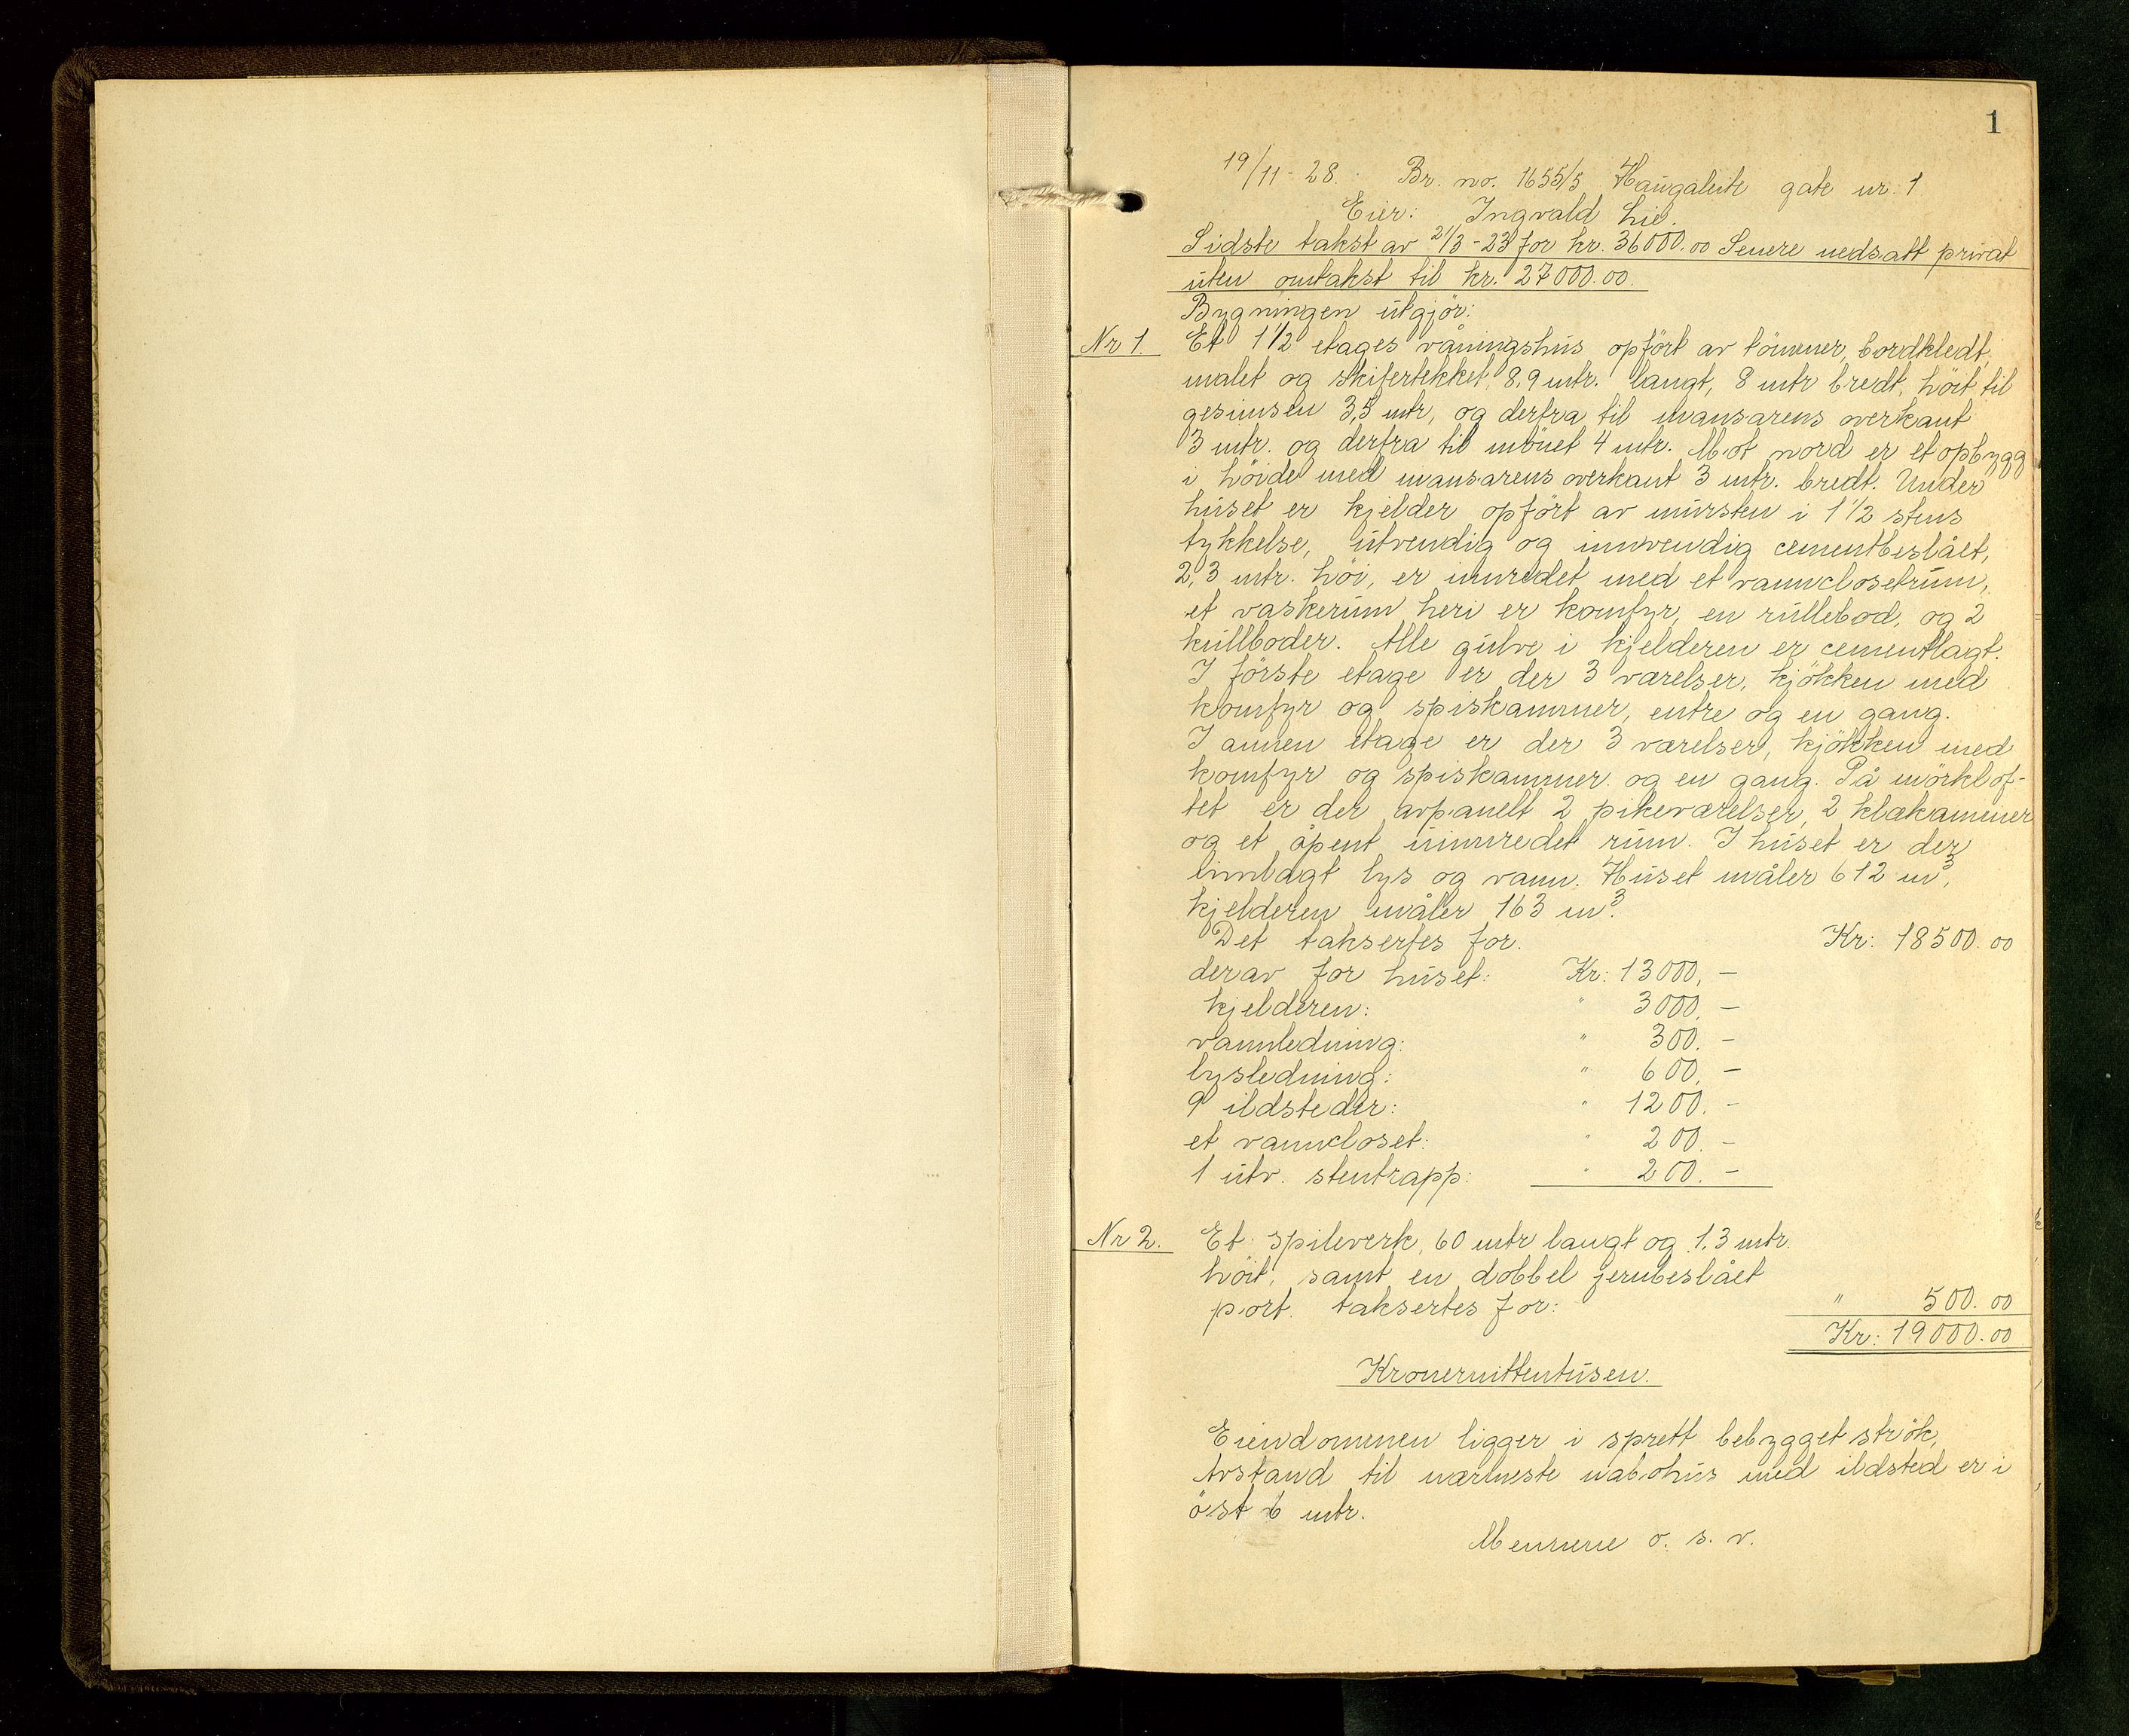 1
19/11-28. Br. no. 1655/5 Haugaleite gate nr. 1
Eier: Ingvald Lie.
Sidste takst av 21/3-23 for kr. 36000.00 Senere nedsatt privat
uten omtakst til kr. 27000.00.
Bygningen utgjör:
Nr 1. Et 1 1/2 etages våningshus opfört av tömmer, bordkledt,
malet og skifertekket, 8,9 mtr. langt, 8 mtr bredt, höit til
gesimsen 3,5 mtr, og derfra til mansarens overkant
3 mtr. og derfra til mönet 4 mtr. Mot nord er et opbygg
i höide med mansarens overkant 3 mtr. bredt. Under
huset er kjelder opfört av mursten i 1 1/2 stens
tykkelse, utvendig og innvendig cementbeslået,
2,3 mtr. höi, er innredet med et vannclosetrum,
et vaskerum heri er komfyr, en rullebod, og 2
kullboder. Alle gulve i kjelderen er cementlagt.
I förste etage er der 3 værelser, kjökken med
komfyr og spiskammer, entre og en gang.
I annen etage er der 3 værelser, kjökken med
komfyr og spiskammer og en gang. På mörklof-
tet er der avpanelt 2 pikeværelser, 2 klækammer
og et åpent uinnredet rum. I huset er der
innlagt lys og vann. Huset måler 612 m³,
kjelderen måler 163 m³.
Det taksertes for. Kr: 18500.00
derav for huset: Kr: 13000.-
kjelderen: " 3000.-
vannledning: " 300.-
lysledning: " 600.-
9 ildsteder: " 1200.-
et vanncloset: " 200.-
1 utv. stentrapp: " 200.-
Nr 2. Et spileverk, 60 mtr langt og 1.3 mtr.
höit, samt en dobbel jernbeslået
port. taksertes for: " 500.00
Kr: 19000.00
Kronernittentusen.
Eiendommen ligger i sprett bebygget strök,
Avstand til nærmeste nabohus med ildsted er i
öst 6 mtr.
Mennene o. s. v.